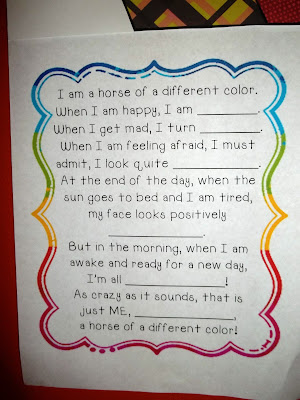 I am a horse of a different color.
When I am happy, I am __________.
When I get mad, I turn __________.
When I am feeling afraid, I must
admit, I look quite ______________.
At the end of the day, when the
sun goes to bed and I am tired,
my face looks positively
_______________.
But in the morning, when I am
awake and ready for a new day,
I'm all ________________!
As crazy as it sounds, that is
just ME, ________________,
a horse of a different color!